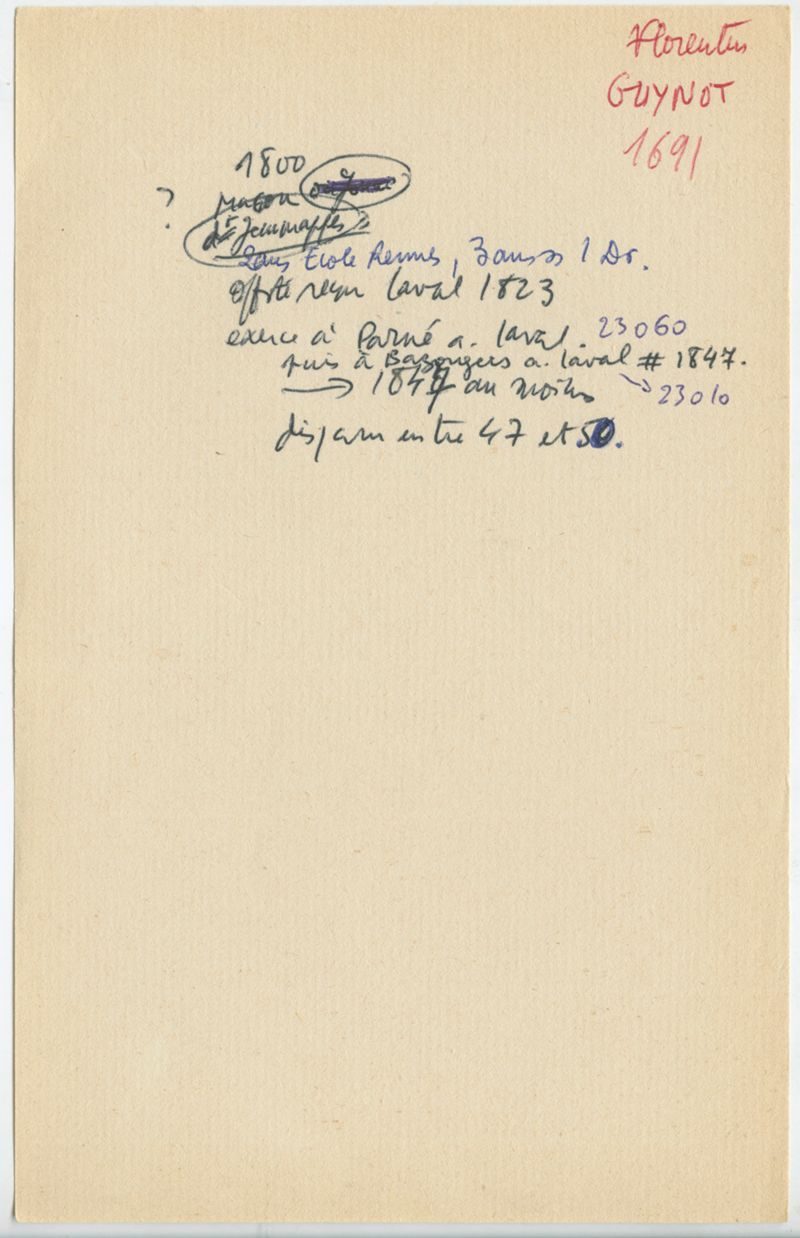 Florentin
GUYNOT
1691
1800
?
dt Jemmappes
2 ans Ecole Rennes, 3 ans ss 1 Dr.
offté reçu Laval 1823
exerce à Parné a. Laval. 23060
puis à Bazougers a. Laval # 1847.
→ 1847 au moins
23010
disparu entre 47 et 50.